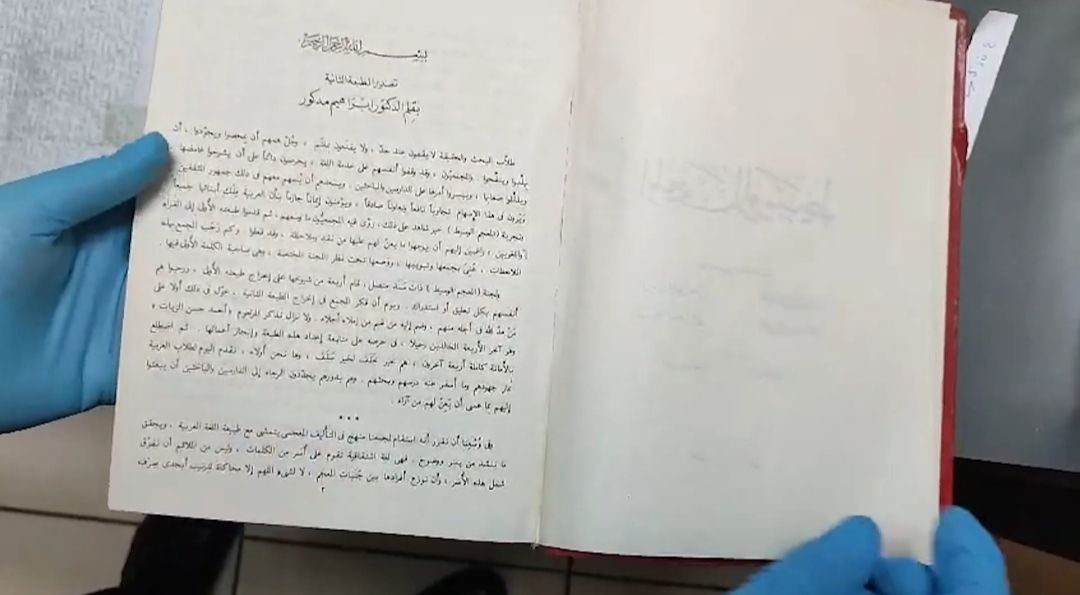 بسم الله الرحمن الرحيم
تصدير الطبعة الثانية
بقلم الدكتور إبراهيم مدكور
طلاب البحث والحقيقة لا يقفون عند حدّ ، ولا يقنعون بعلم ، وجُلّ همهم أن يمحصوا ويجوّدوا ، أن
يهذّبوا وينقّحوا . والمجمعيّون ، وقد وقفوا أنفسهم على خدمة اللغة ، يحرصون دائماً على أن يشرحوا غامضها
ويذلّلوا صعابها ، وييسروا أمرها على الدارسين والباحثين ، ويسعدهم أن يُسهم معهم فى ذلك جمهور المثقفين
ويَرَون فى هذا الإسهام تجاوباً نافعاً وتعاوناً صادقاً ، ويؤمنون إيماناً جازماً بأن العربية مِلْك أبنائها جميعاً
وتجربة ( المعجم الوسيط ) خير شاهد على ذلك ، روّى فيه المجمعيّون ما وسعهم ، ثم قدموا طبعته الأولى إلى القراء
واللغويين ، راغبين إليهم أن يوجهوا ما يعنّ لهم عليها من نقد وملاحظة . وقد فعلوا . وكم رَحّب المجمع بهذه
الملاحظات ، عُنىَ بجمعها وتبويبها ، ووضعها تحت نظر اللجنة المختصة ، وهى صاحبة الكلمة الأولى فيها .
ولجنة ( المعجم الوسيط ) ذات سَنَد متصل ، قام أربعة من شيوخها على إخراج طبعته الأولى ، ورحبوا هم
أنفسهم بكل تعليق أو استدراك . ويوم أن فكر المجمع فى إخراج الطبعة الثانية ، عوّل فى ذلك أولا على
مَنْ مدّ الله فى أجله منهم ، وضم إليه من ضم من زملاء أجلاء . ولا نزال نذكر للمرحوم « أحمد حسن الزيات »
وهو آخر الأربعة الخالدين رحيلا ، فى حرصه على متابعة إعداد هذه الطبعة وإنجاز أعمالها . ثم اضطلع
بالأمانة كاملة أربعة آخرون ، هم خير خَلَف لخير سَلَف ، وها نحن أولاء ، نقدم اليوم لطلاب العربية
ثمار جهودهم وما أسفر عنه درسهم وبحثهم . وهم بدورهم يجدّدون الرجاء إلى الدارسين والباحثين أن يبعثوا
إليهم بما عسى أن يَعِنّ لهم من آراء .
* * *
وفى وُسْعِنا أن نقرر أنه استقام لمجمعنا منهج فى التأليف المعجمى يتمشى مع طبيعة اللغة العربية ، ويحقق
ما ننشد من يسر ووضوح . فهى لغة اشتقاقية تقوم على أُسَر من الكلمات ، وليس من الملائم أن نفرّق
شمل هذه الأُسَر ، وأن نوزع أفرادها بين جَنَبات المعجم ، لا لشىء اللهم إلا محاكاة لترتيب أبجدى صِرْف
٢